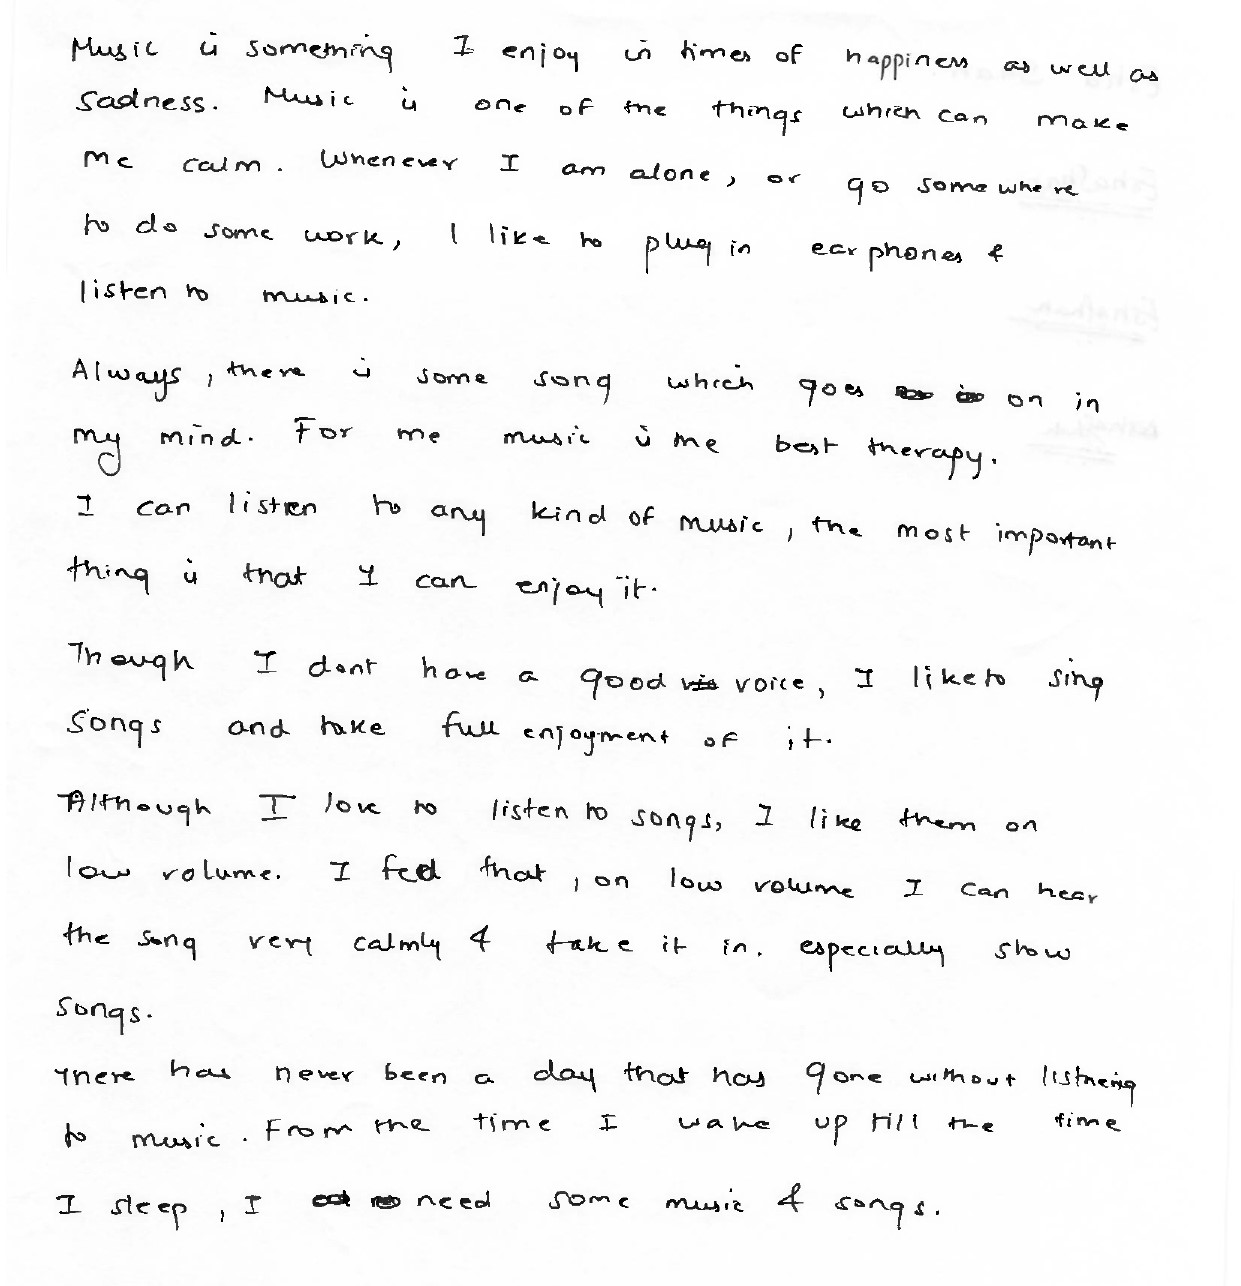 Music is something I enjoy in times of happiness as well as
sadness. Music is one of the things which can make
me calm. Whenever I am alone, or go somewhere
to do some work, I like to plug in earphones &
listen to music.
Always, there is some song which goes on in
my mind. For me music is the best therapy.
I can listen to any kind of music, the most important
thing is that I can enjoy it.
Though I dont have a good voice, I like to sing
songs and take full enjoyment of it.
Although I love to listen to songs, I like them on
low volume. I feel that, on low volume I can hear
the song very calmly & take it in. especially slow
songs.
There has never been a day that has gone without listneing
to music. From the time I wake up till the time
I sleep, I need some music & songs.